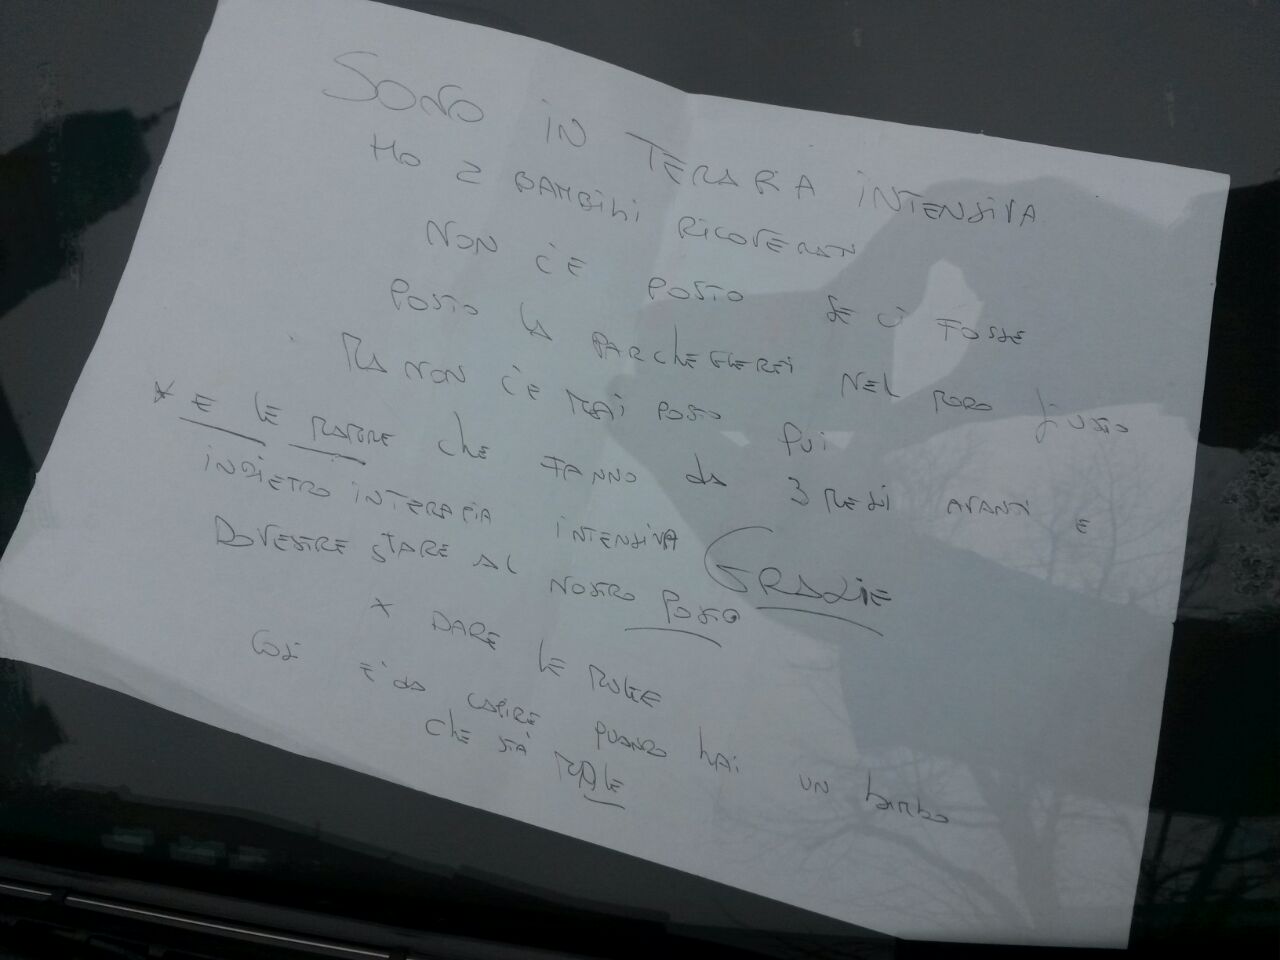 SONO IN TERAPIA INTENSIVA
HO 2 BAMBINI RICOVERATI
NON C'E POSTO SE CI FOSSE
POSTO LA PARCHEGGEREI NEL MODO GIUSTO
MA NON C'E MAI POSTO PUI
* E LE MAMME CHE FANNO da 3 MESI AVANTI E
INDIETRO IN TERAPIA INTENSIVA GRAZIE
DOVESTRE STARE AL NOSTRO POSTO
x DARE LE MULTE
COSI E' da CAPIRE QUANDO hAi UN bimbo
ChE STA MALE